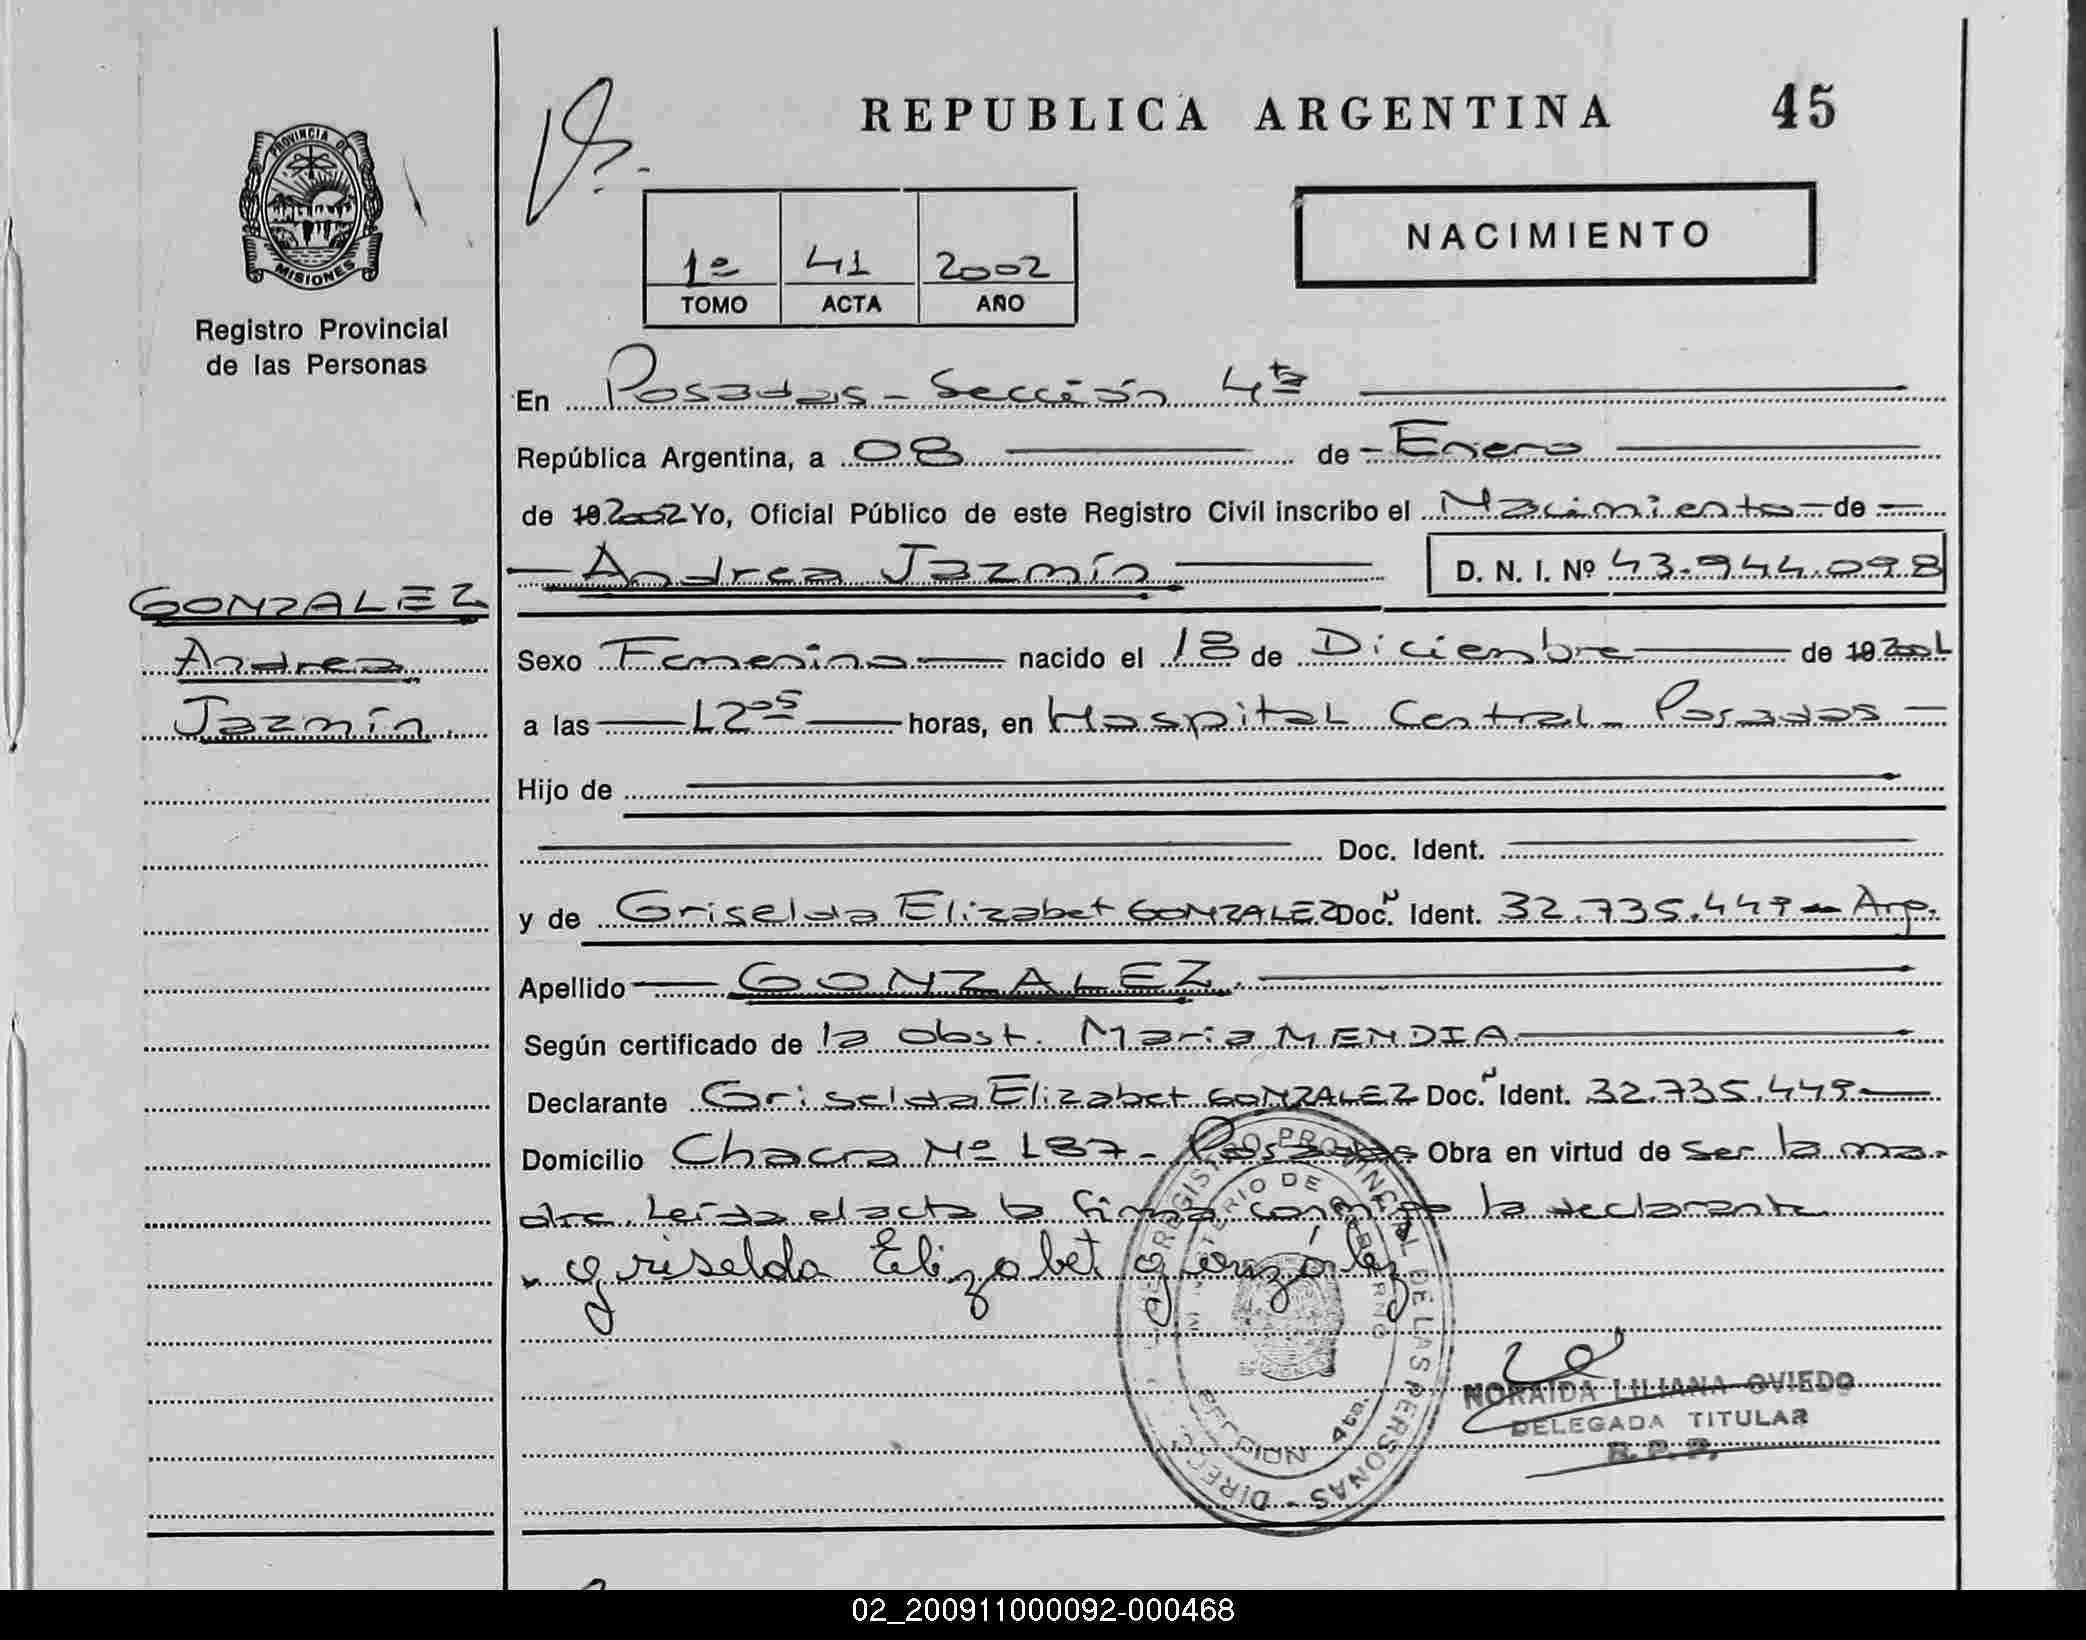 REPUBLICA ARGENTINA 45
PROVINCIA DE
MISIONES
Registro Provincial
de las Personas
1º 41 2002
TOMO ACTA AÑO
NACIMIENTO
En Posadas - Sección 4ta
República Argentina, a 08 de Enero
de 19 2002 Yo, Oficial Público de este Registro Civil inscribo el Nacimiento de
Andrea Jazmín D. N. I. Nº 43.944.098
GONZALEZ
Andrea
Jazmín.
Sexo Femenino nacido el 18 de Diciembre de 19 2001
a las 12 05 horas, en Hospital Central - Posadas
Hijo de
Doc. Ident.
y de Griselda Elizabet GONZALEZ Doc. Ident. 32.735.449 - Arg.
Apellido GONZALEZ.
Según certificado de la obst. Maria MENDIA
Declarante Griselda Elizabet GONZALEZ Doc. Ident. 32.735.449
Domicilio Chacra Nº 187 - Posadas Obra en virtud de ser la ma-
dre. Leída el acta la firma conmigo la declarante
Griselda Elizabet González
DIREC REGISTRO PROVINCIAL DE LAS PERSONAS -
MINISTERIO DE GOBIERNO
SECCION 4ta.
NORAIDA LILIANA OVIEDO
DELEGADA TITULAR
R. P. P.
02_200911000092-000468